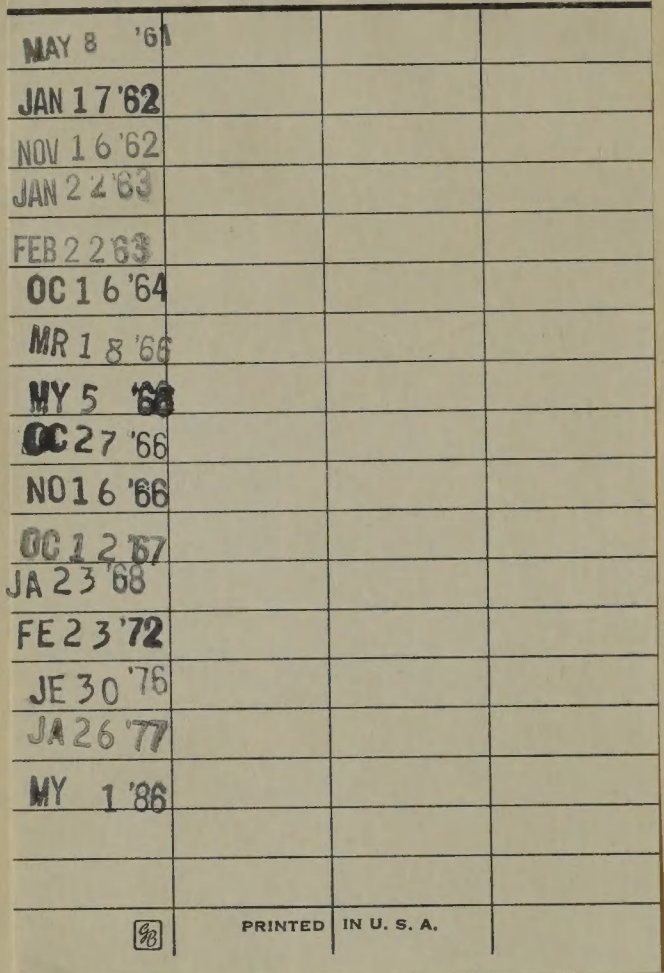 MAY 8 '61
JAN 17 '62
NOV 16 '62
JAN 22 '63
FEB 22 '63
OC 16 '64
MR 18 '66
MY 5 '66
OC 27 '66
NO 16 '66
OC 12 '67
JA 23 '68
FE 23 '72
JE 30 '76
JA 26 '77
MY 1 '86
GB PRINTED IN U. S. A.